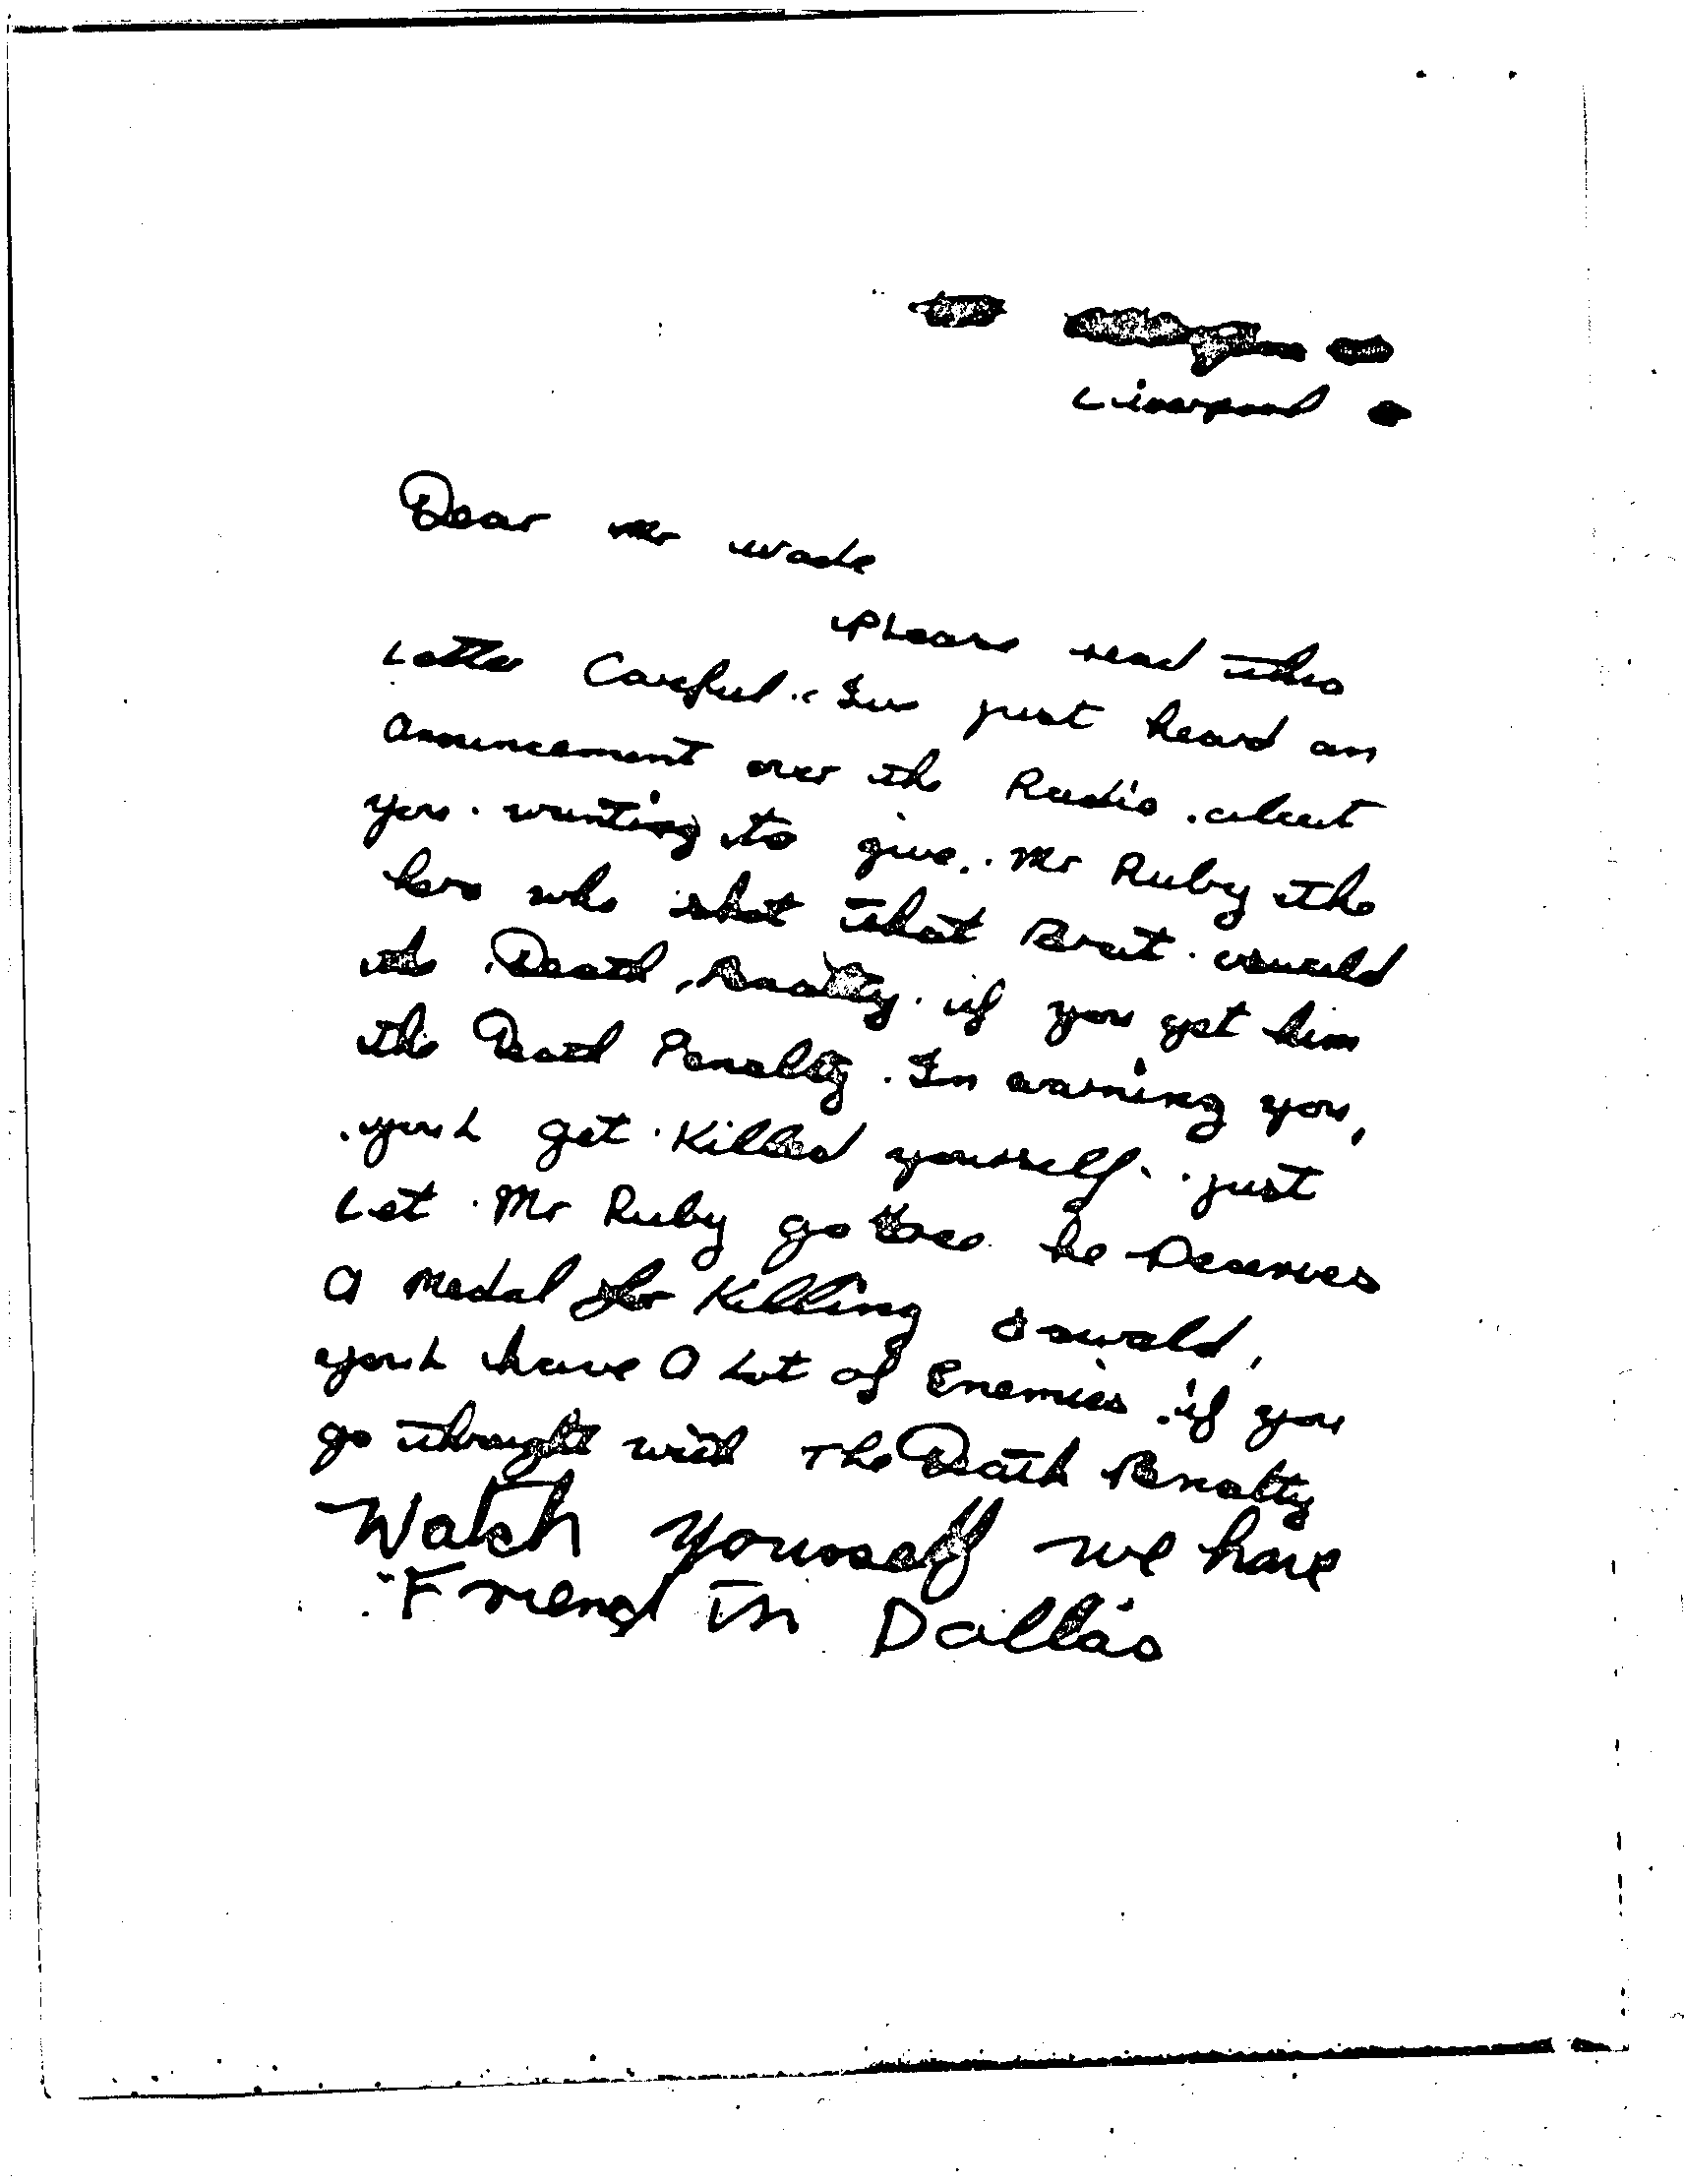 Liverpool
Dear Mr Wade
Please read this
Letter Careful. Ive just heard an
anouncement over the Radio. about
you. wanting to give. Mr Ruby the
hero who shot that Brat. oswald
the Death, Penalty. if you get him
the Death Penalty. Im warning you,
youL get. Killed yourself. just
Let. Mr Ruby go free he Deserves
a Medal for Killing oswald,
youL have a Lot of Enemies. if you
go throught with The Death Penalty
Watch yourself we have
Friend in Dallas